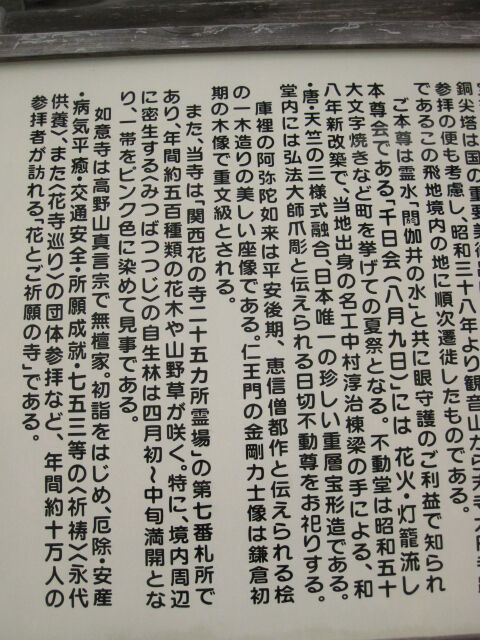 銅尖塔は国の重要美術品
参拝の便も考慮し、昭和三十八年より観音山から
であるこの飛地境内の地に順次遷徙したものである。
ご本尊は霊水「閼伽井の水」と共に眼守護のご利益で知られ
本尊会である「千日会(八月九日)」には 花火・灯籠流し
大文字焼きなど町を挙げての夏祭となる。不動堂は昭和五十
八年新改築で、当地出身の名工中村淳治棟梁の手による、和
・唐・天竺の三様式融合、日本唯一の珍しい重層宝形造である。
堂内には弘法大師爪彫と伝えられる日切不動尊をお祀りする。
庫裡の阿弥陀如来は平安後期、恵信僧都作と伝えられる桧
の一木造りの美しい座像である。仁王門の金剛力士像は鎌倉初
期の木像で重文級とされる。
また、当寺は「関西花の寺二十五カ所霊場」の第七番札所で
あり、年間約五百種類の花木や山野草が咲く。特に、境内周辺
に密生する〈みつばつつじ〉の自生林は四月初〜中旬満開とな
り、一帯をピンク色に染めて見事である。
如意寺は高野山真言宗で無檀家。初詣をはじめ、厄除・安産
・病気平癒・交通安全・所願成就・七五三等の〈祈祷〉〈永代
供養〉、また〈花寺巡り〉の団体参拝など、年間約十万人の
参拝者が訪れる「花とご祈願の寺」である。